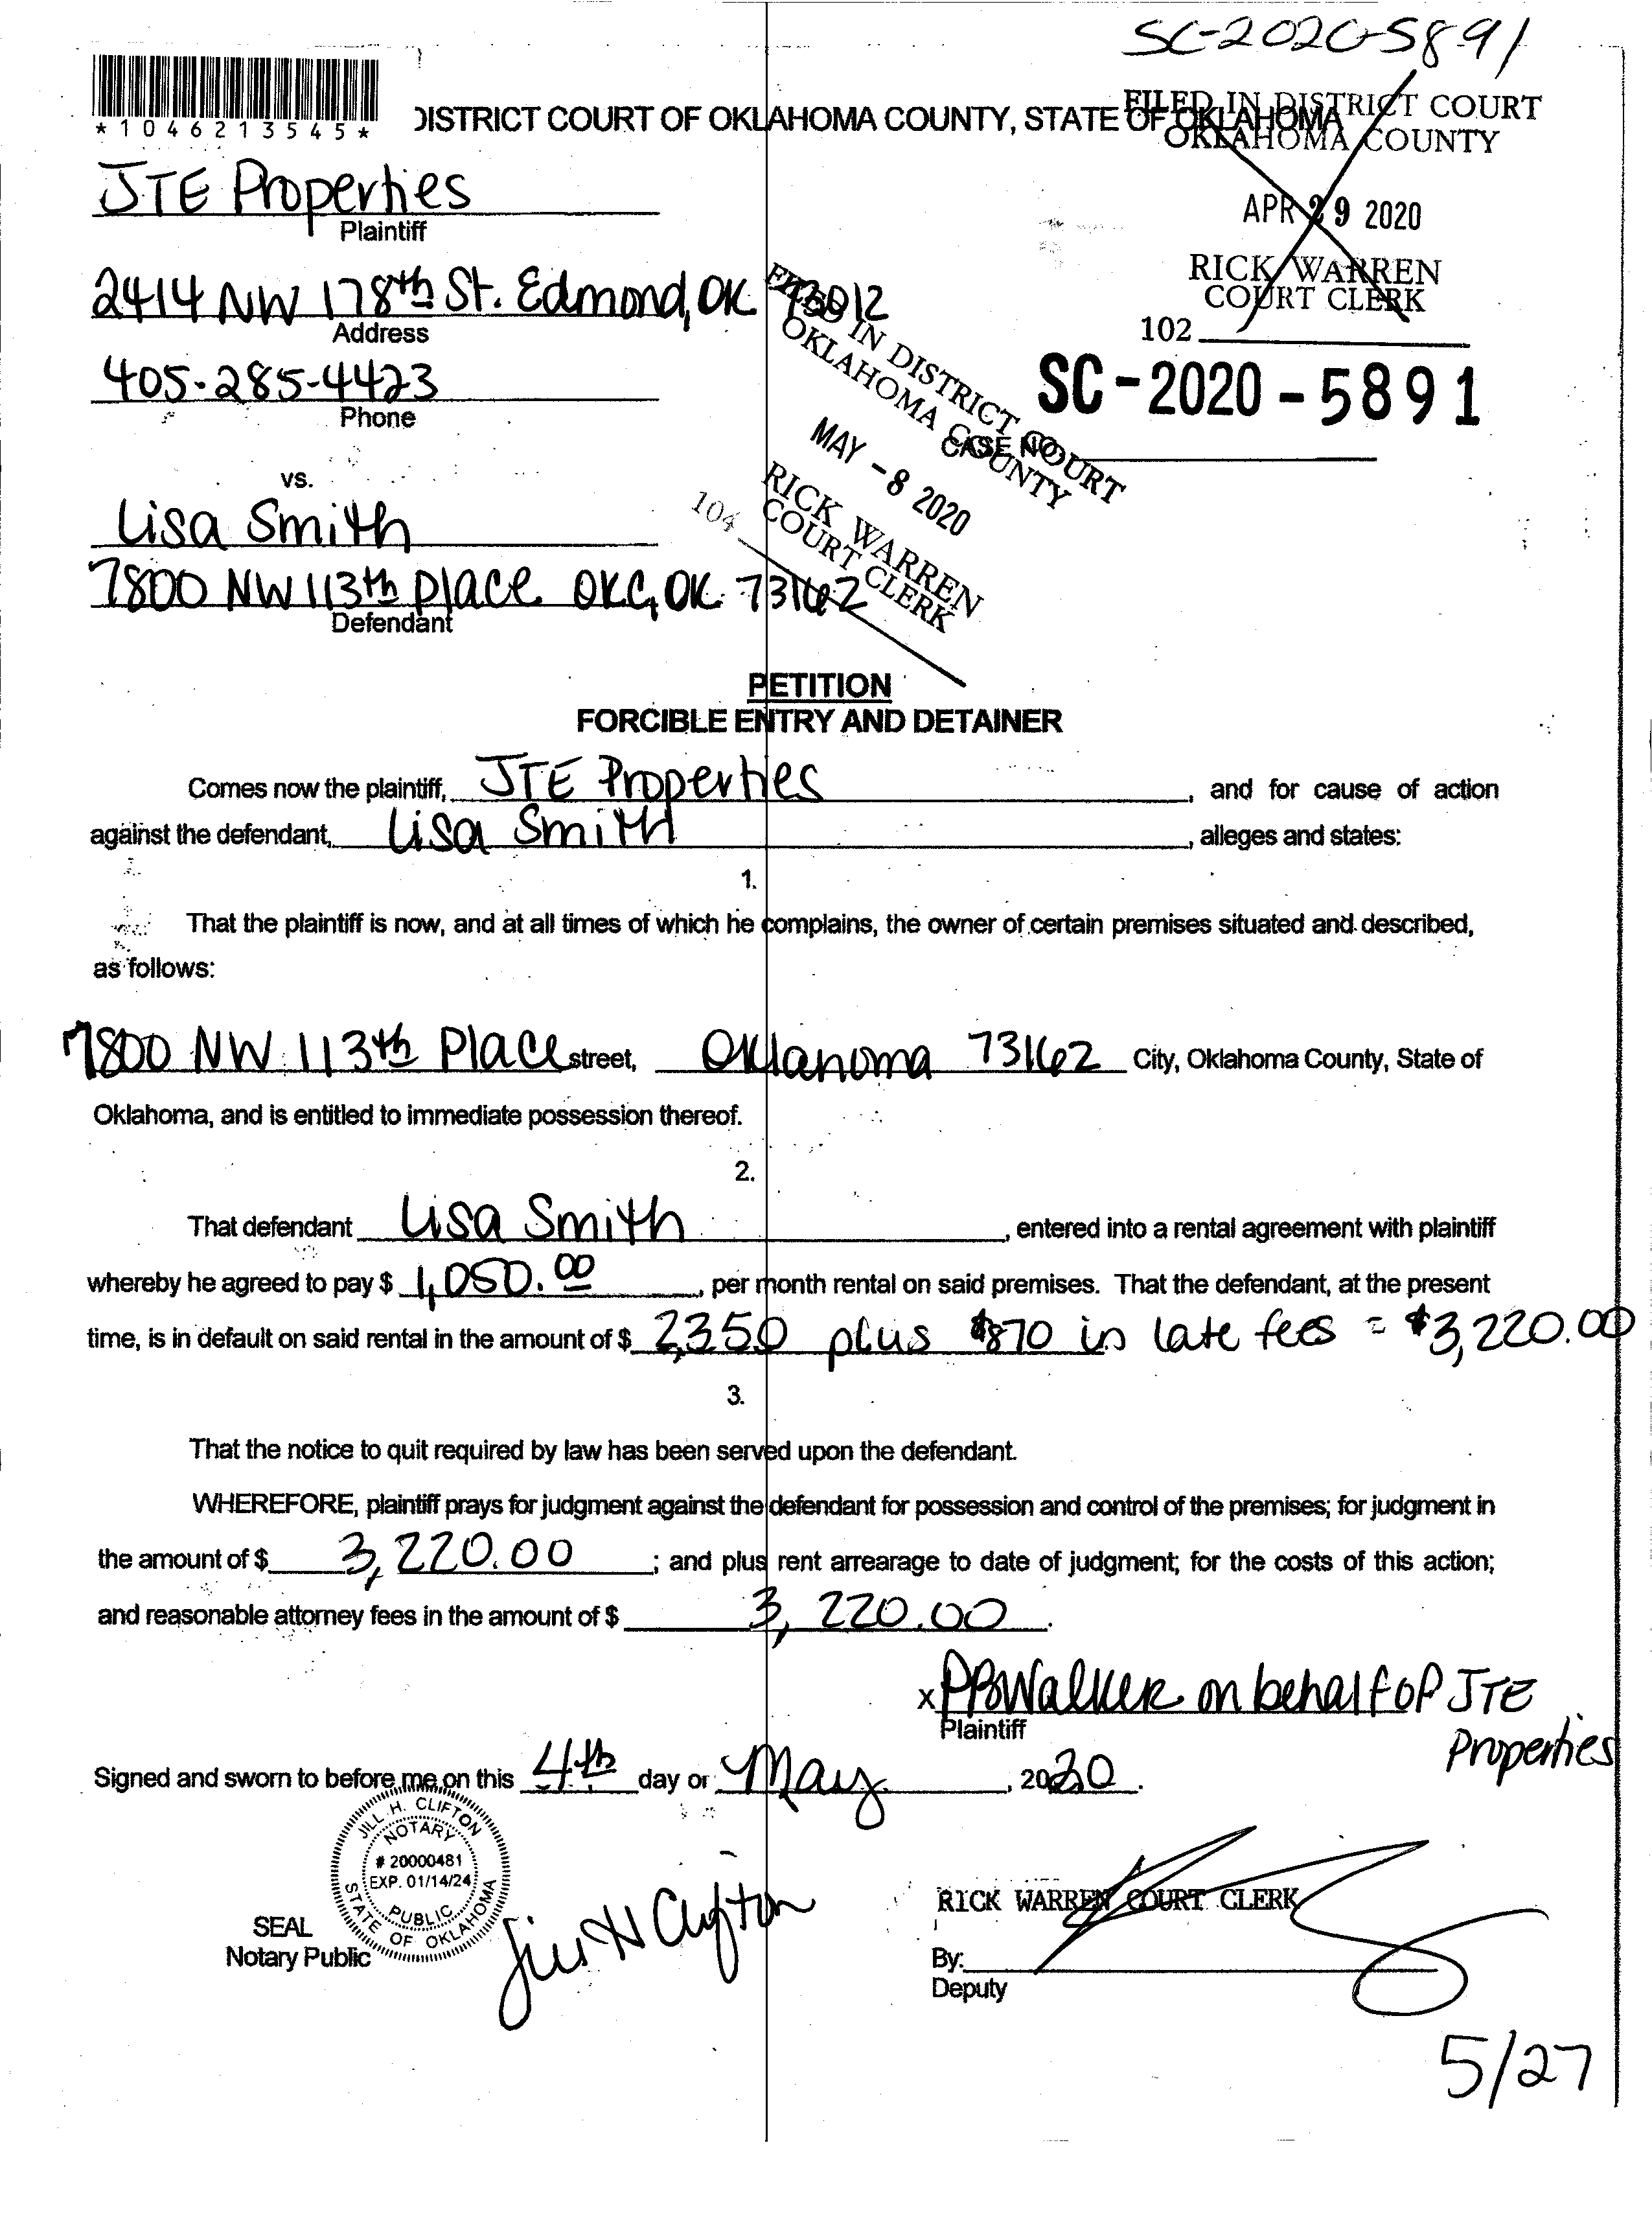 SC-2020-5891
*1046213545*
DISTRICT COURT OF OKLAHOMA COUNTY, STATE OF OKLAHOMA
FILED IN DISTRICT COURT
OKLAHOMA COUNTY
APR 29 2020
RICK WARREN
COURT CLERK
102
SC-2020-5891
CASE NO.
JTE Properties
Plaintiff
2414 NW 178th St. Edmond, OK 73012
Address
405-285-4423
Phone
FILED IN DISTRICT COURT
OKLAHOMA COUNTY
MAY -8 2020
RICK WARREN
COURT CLERK
104
vs.
Lisa Smith
7800 NW 113th Place OKC, OK 73162
Defendant
PETITION
FORCIBLE ENTRY AND DETAINER
Comes now the plaintiff, JTE Properties, and for cause of action
against the defendant, Lisa Smith, alleges and states:
1.
That the plaintiff is now, and at all times of which he complains, the owner of certain premises situated and described,
as follows:
7800 NW 113th Place street, Oklahoma 73162 City, Oklahoma County, State of
Oklahoma, and is entitled to immediate possession thereof.
2.
That defendant Lisa Smith, entered into a rental agreement with plaintiff
whereby he agreed to pay $ 1,050.00, per month rental on said premises. That the defendant, at the present
time, is in default on said rental in the amount of $ 2,350 plus $870 in late fees = $3,220.00
3.
That the notice to quit required by law has been served upon the defendant.
WHEREFORE, plaintiff prays for judgment against the defendant for possession and control of the premises; for judgment in
the amount of $ 3,220.00; and plus rent arrearage to date of judgment; for the costs of this action;
and reasonable attorney fees in the amount of $ 3,220.00.
x PBWalker on behalf of JTE
Properties
Plaintiff
Signed and sworn to before me on this 4th day or May, 2020.
JILL H. CLIFTON
NOTARY
# 20000481
EXP. 01/14/24
PUBLIC
STATE OF OKLAHOMA
SEAL
Notary Public
Jill H Clifton
RICK WARREN COURT CLERK
By:
Deputy
5/27